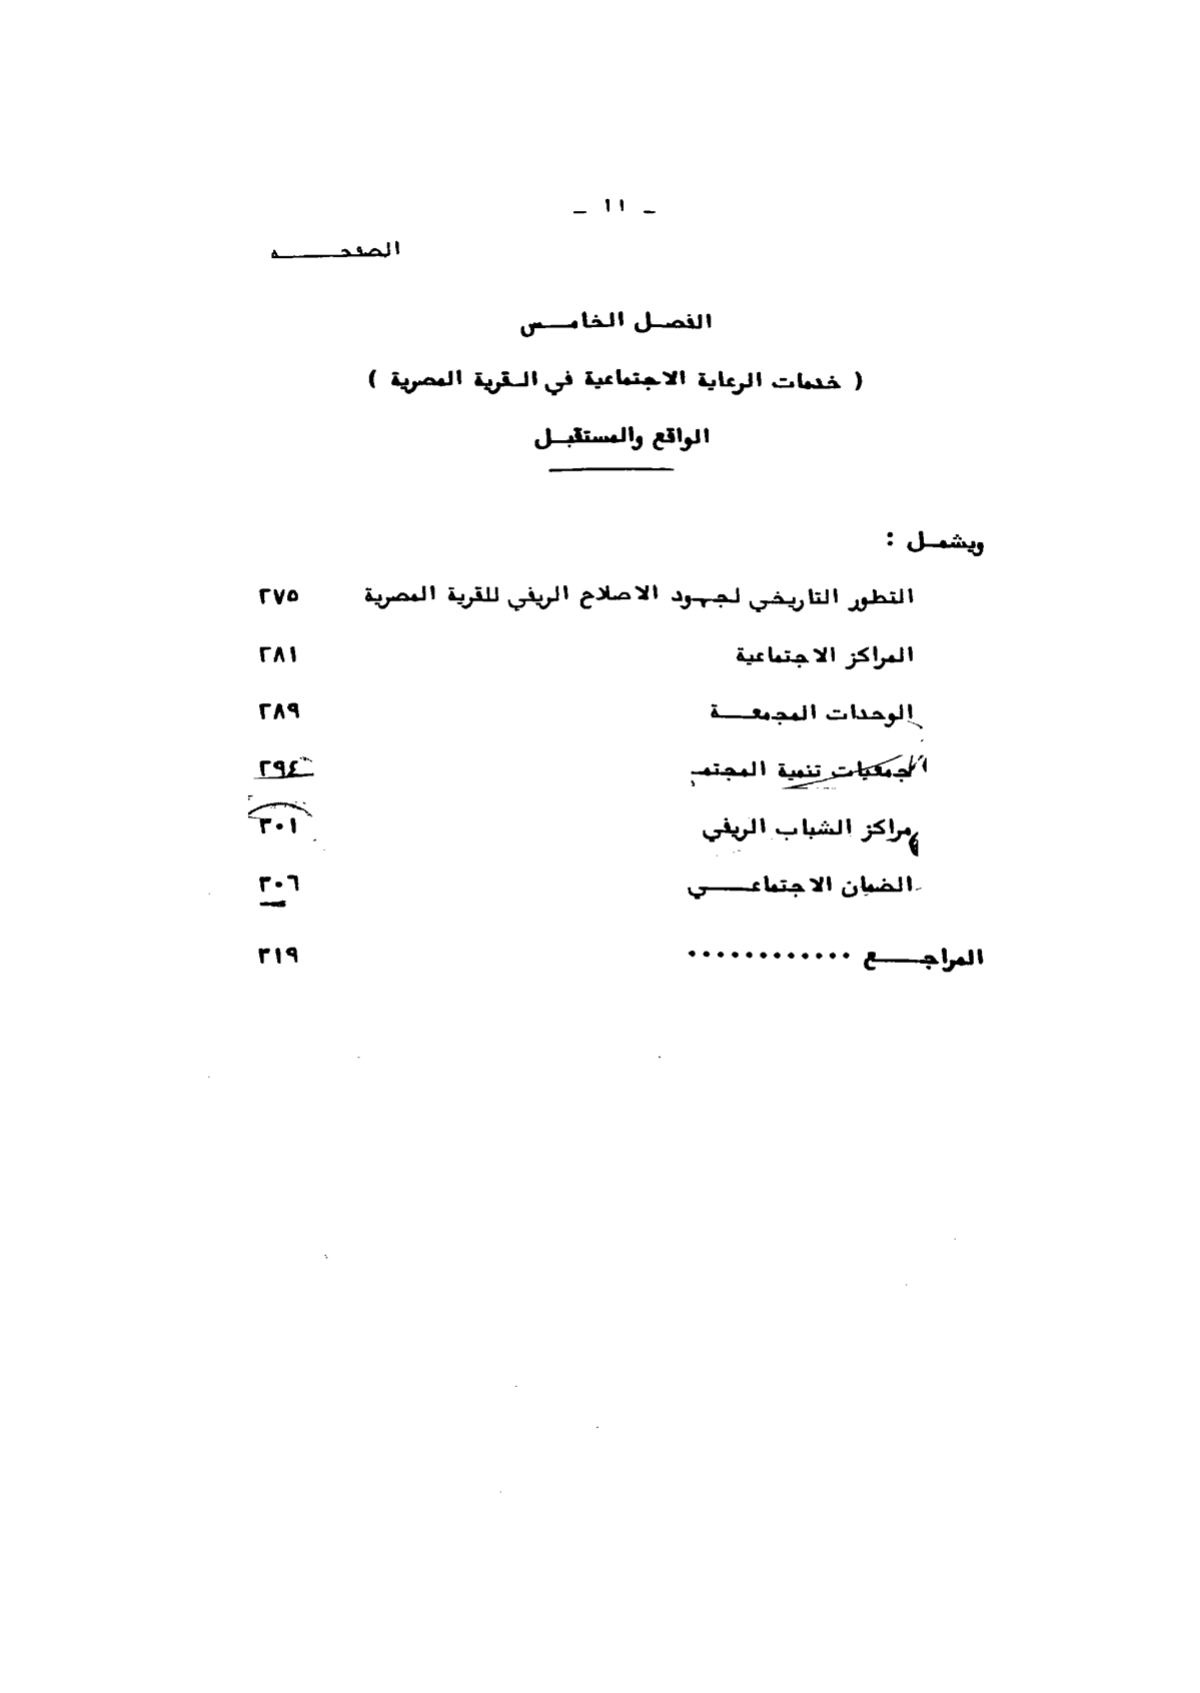 - ١١ -
الصفحه
الفصل الخامس
( خدمات الرعاية الاجتماعية في القرية المصرية )
الواقع والمستقبل
ويشمل :
التطور التاريخي لجهود الاصلاح الريفي للقرية المصرية ٢٧٥
المراكز الاجتماعية ٢٨١
الوحدات المجمعة ٢٨٩
جمعيات تنمية المجتمع ٢٩٤
مراكز الشباب الريفي ٣٠١
الضمان الاجتماعي ٣٠٦
المراجع ............ ٣١٩